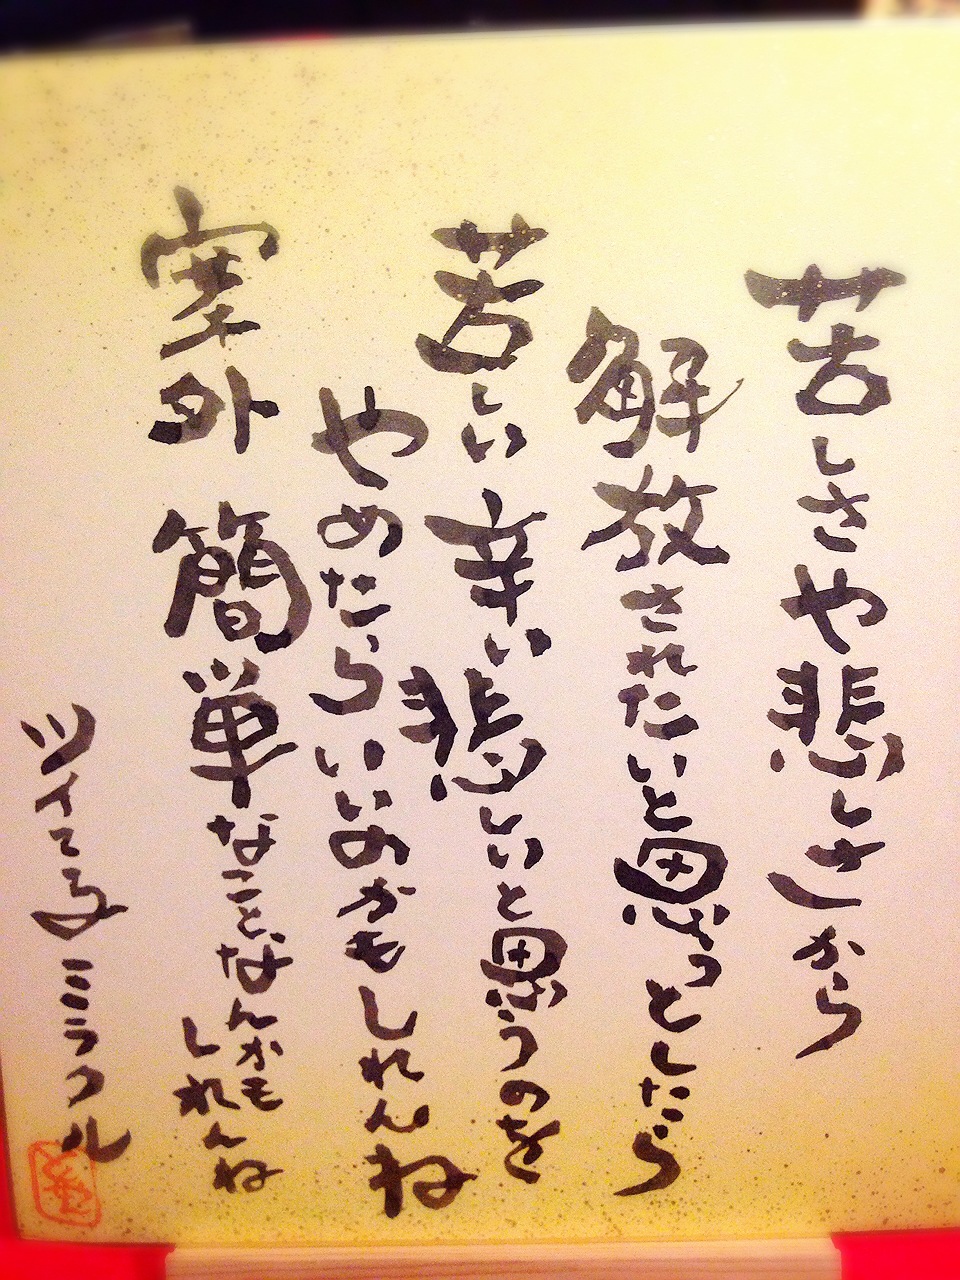 苦しさや悲しさから
解放されたいと思っとしたら
苦しい辛い悲しいと思うのを
やめたらいいのかもしれんね
案外簡単なことなんかも
しれんね
ツイてるミラクル